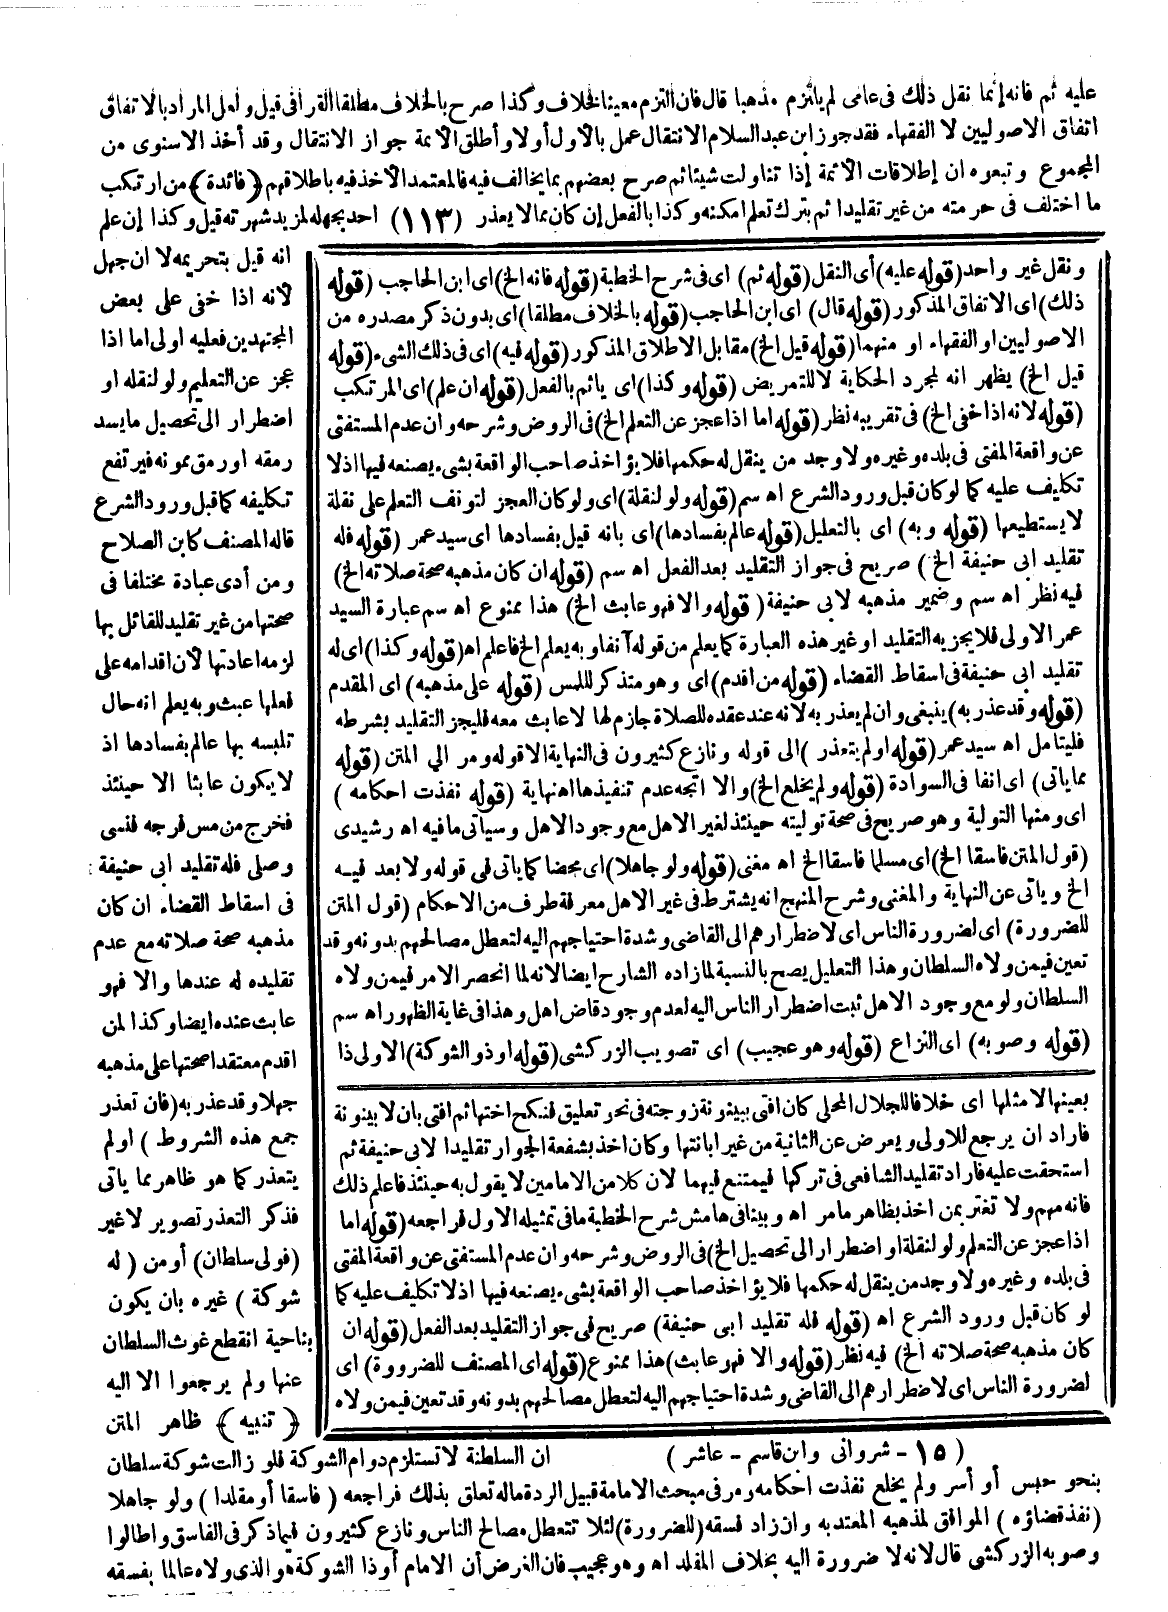 عليه ثم فانه إنما نقل ذلك فى عامى لم يلتزم مذهبا قال فان التزم معينا فخلاف وكذا صرح بالخلاف مطلقا القرافى قيل ولعل المراد بالاتفاق
اتفاق الاصوليين لا الفقهاء فقد جوز ابن عبد السلام الانتقال عمل بالاول أو لا وأطلق الائمة جواز الانتقال وقد أخذ الاسنوى من
المجموع وتبعوه ان إطلاقات الائمة إذا تناولت شيئا ثم صرح بعضهم بما يخالف فيه فالمعتمد الاخذ فيه باطلاقهم (فائدة) من ارتكب
ما اختلف فى حرمته من غير تقليد اثم بترك تعلم امكنه وكذا بالفعل إن كان مما لا يعذر (١١٣) احد بجهله لمزيد شهرته قيل وكذا إن علم
انه قيل بتحريمه لا ان جهل
لانه اذا خفى على بعض
المجتهدين فعليه اولى اما اذا
عجز عن التعليم ولو لنقله او
اضطرار الى تحصيل ما يسد
رمقه او رمق ممونه فيرتفع
تكليفه كما قبل ورود الشرع
قاله المصنف كابن الصلاح
ومن أدى عبادة مختلفا فى
صحتها من غير تقليد للقائل بها
لزمه اعادتها لان اقدامه على
فعلها عبث وبه يعلم انه حال
تلبسه بها عالم بفسادها اذ
لا يكون عابثا الا حينئذ
فخرج من مس فرجه فنسى
وصلى فله تقليد ابى حنيفة
فى اسقاط القضاء ان كان
مذهبه صحة صلاته مع عدم
تقليده له عندها والا فهو
عابث عنده ايضا وكذا لمن
اقدم معتقدا صحتها على مذهبه
جهلا وقد عذر به (فان تعذر
جمع هذه الشروط) او لم
يتعذر كما هو ظاهر مما يأتى
فذكر التعذر تصوير لا غير
(فولى سلطان) أو من (له
شوكة) غيره بان يكون
بناحية انقطع غوث السلطان
عنها ولم يرجعوا الا اليه
(تنبيه) ظاهر المتن
ونقل غير واحد (قوله عليه) أى النقل (قوله ثم) اى فى شرح الخطبة (قوله فانه الخ) اى ابن الحاجب (قوله
ذلك) اى الاتفاق المذكور (قوله قال) اى ابن الحاجب (قوله بالخلاف مطلقا) اى بدون ذكر مصدره من
الاصوليين او الفقهاء او منهما (قوله قيل الخ) مقابل الاطلاق المذكور (قوله فيه) اى فى ذلك الشىء (قوله
قيل الخ) يظهر انه لمجرد الحكاية لا للتمريض (قوله وكذا) اى يأثم بالفعل (قوله ان علم) اى المرتكب
(قوله لانه اذا خفى الخ) فى تقريبه نظر (قوله اما اذا عجز عن التعلم الخ) فى الروض وشرحه وان عدم المستفتى
عن واقعة المفتى فى بلده وغيره ولا وجد من ينقل له حكمها فلا يؤاخذ صاحب الواقعة بشىء يصنعه فيها اذ لا
تكليف عليه كما لو كان قبل ورود الشرع اه سم (قوله ولو لنقلة) اى ولو كان العجز لتوقف التعلم على نقلة
لا يستطيعها (قوله وبه) اى بالتعليل (قوله عالم بفسادها) اى بانه قيل بفسادها اى سيد عمر (قوله فله
تقليد ابى حنيفة الخ) صريح فى جواز التقليد بعد الفعل اه سم (قوله ان كان مذهبه صحة صلاته الخ)
فيه نظر اه سم وضمير مذهبه لابى حنيفة (قوله والا فهو عابث الخ) هذا ممنوع اه سم عبارة السيد
عمر الاولى فلا يجزيه التقليد او غير هذه العبارة كما يعلم من قوله آنفا وبه يعلم الخ فاعلم اه (قوله وكذا) اى له
تقليد ابى حنيفة فى اسقاط القضاء (قوله من اقدم) اى وهو متذكر للمس (قوله على مذهبه) اى المقدم
(قوله وقد عذر به) ينبغى وان لم يعذر به لانه عند عقده للصلاة جازم لها لا عابث معه فليجز التقليد بشرطه
فليتامل اه سيد عمر (قوله او لم يتعذر) الى قوله ونازع كثيرون فى النهاية الا قوله ومر الى المتن (قوله
مما يأتى) اى انفا فى السوادة (قوله ولم يخلع الخ) والا اتجه عدم تنفيذها اه نهاية (قوله نفذت احكامه)
اى ومنها التولية وهو صريح فى صحة توليته حينئذ لغير الاهل مع وجود الاهل وسيأتى ما فيه اه رشيدى
(قول المتن فاسقا الخ) اى مسلما فاسقا الخ اه مغنى (قوله ولو جاهلا) اى محضا كما يأتى فى قوله ولا بعد فيه
الخ ويأتى عن النهاية والمغنى وشرح المنهج انه يشترط فى غير الاهل معرفة طرف من الاحكام (قول المتن
للضرورة) اى لضرورة الناس اى لاضطرارهم الى القاضى وشدة احتياجهم اليه لتعطل مصالحهم بدونه وقد
تعين فيمن ولاه السلطان وهذا التعليل يصح بالنسبة لما زاده الشارح ايضا لانه لما انحصر الامر فيمن ولاه
السلطان ولو مع وجود الاهل ثبت اضطرار الناس اليه لعدم وجود قاض اهل وهذا فى غاية الظهور اه سم
(قوله وصوبه) اى النزاع (قوله وهو عجيب) اى تصويب الزركشى (قوله او ذو الشوكة) الاولى ذا
بعينها لا مثلها اى خلافا للجلال المحلى كان افتى ببينونة زوجته فى نحو تعليق فنكح اختها ثم افتى بان لا بينونة
فاراد ان يرجع للاولى ويعرض عن الثانية من غير ابانتها وكان اخذ بشفعة الجوار تقليدا لابى حنيفة ثم
استحقت عليه فاراد تقليد الشافعى فى تركها فيمتنع فيهما لان كلا من الامامين لا يقول به حينئذ فاعلم ذلك
فانه مهم ولا تغتر بمن اخذ بظاهر ما مر اه وبينا فى هامش شرح الخطبة ما فى تمثيله الاول فراجعه (قوله اما
اذا عجز عن التعلم ولو لنقلة او اضطرار الى تحصيل الخ) فى الروض وشرحه وان عدم المستفتى عن واقعة المفتى
فى بلده وغيره ولا وجد من ينقل له حكمها فلا يؤاخذ صاحب الواقعة بشىء يصنعه فيها اذ لا تكليف عليه كما
لو كان قبل ورود الشرع اه (قوله فله تقليد ابى حنيفة) صريح فى جواز التقليد بعد الفعل (قوله ان
كان مذهبه صحة صلاته الخ) فيه نظر (قوله والا فهو عابث) هذا ممنوع (قوله اى المصنف للضرورة) اى
لضرورة الناس اى لاضطرارهم الى القاضى وشدة احتياجهم اليه لتعطل مصالحهم بدونه وقد تعين فيمن ولاه
(١٥ - شروانى وابن قاسم - عاشر)
ان السلطنة لا تستلزم دوام الشوكة فلو زالت شوكة سلطان
بنحو حبس أو أسر ولم يخلع نفذت احكامه ومر فى مبحث الامامة قبيل الردة ما له تعلق بذلك فراجعه (فاسقا أو مقلدا) ولو جاهلا
(نفذ قضاؤه) الموافق لمذهبه المعتد به وان زاد فسقه (للضرورة) لئلا تتعطل مصالح الناس ونازع كثيرون فيما ذكر فى الفاسق واطالوا
وصوبه الزركشى قال لانه لا ضرورة اليه بخلاف المقلد اه وهو عجيب فان الغرض أن الامام أو ذا الشوكة هو الذى ولاه عالما بفسقه